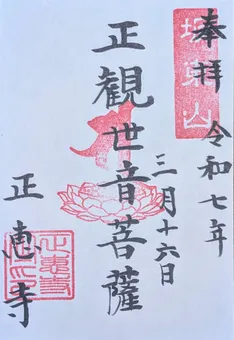 奉拝
令和七年
三月十六日
正観世音菩薩
正恵寺